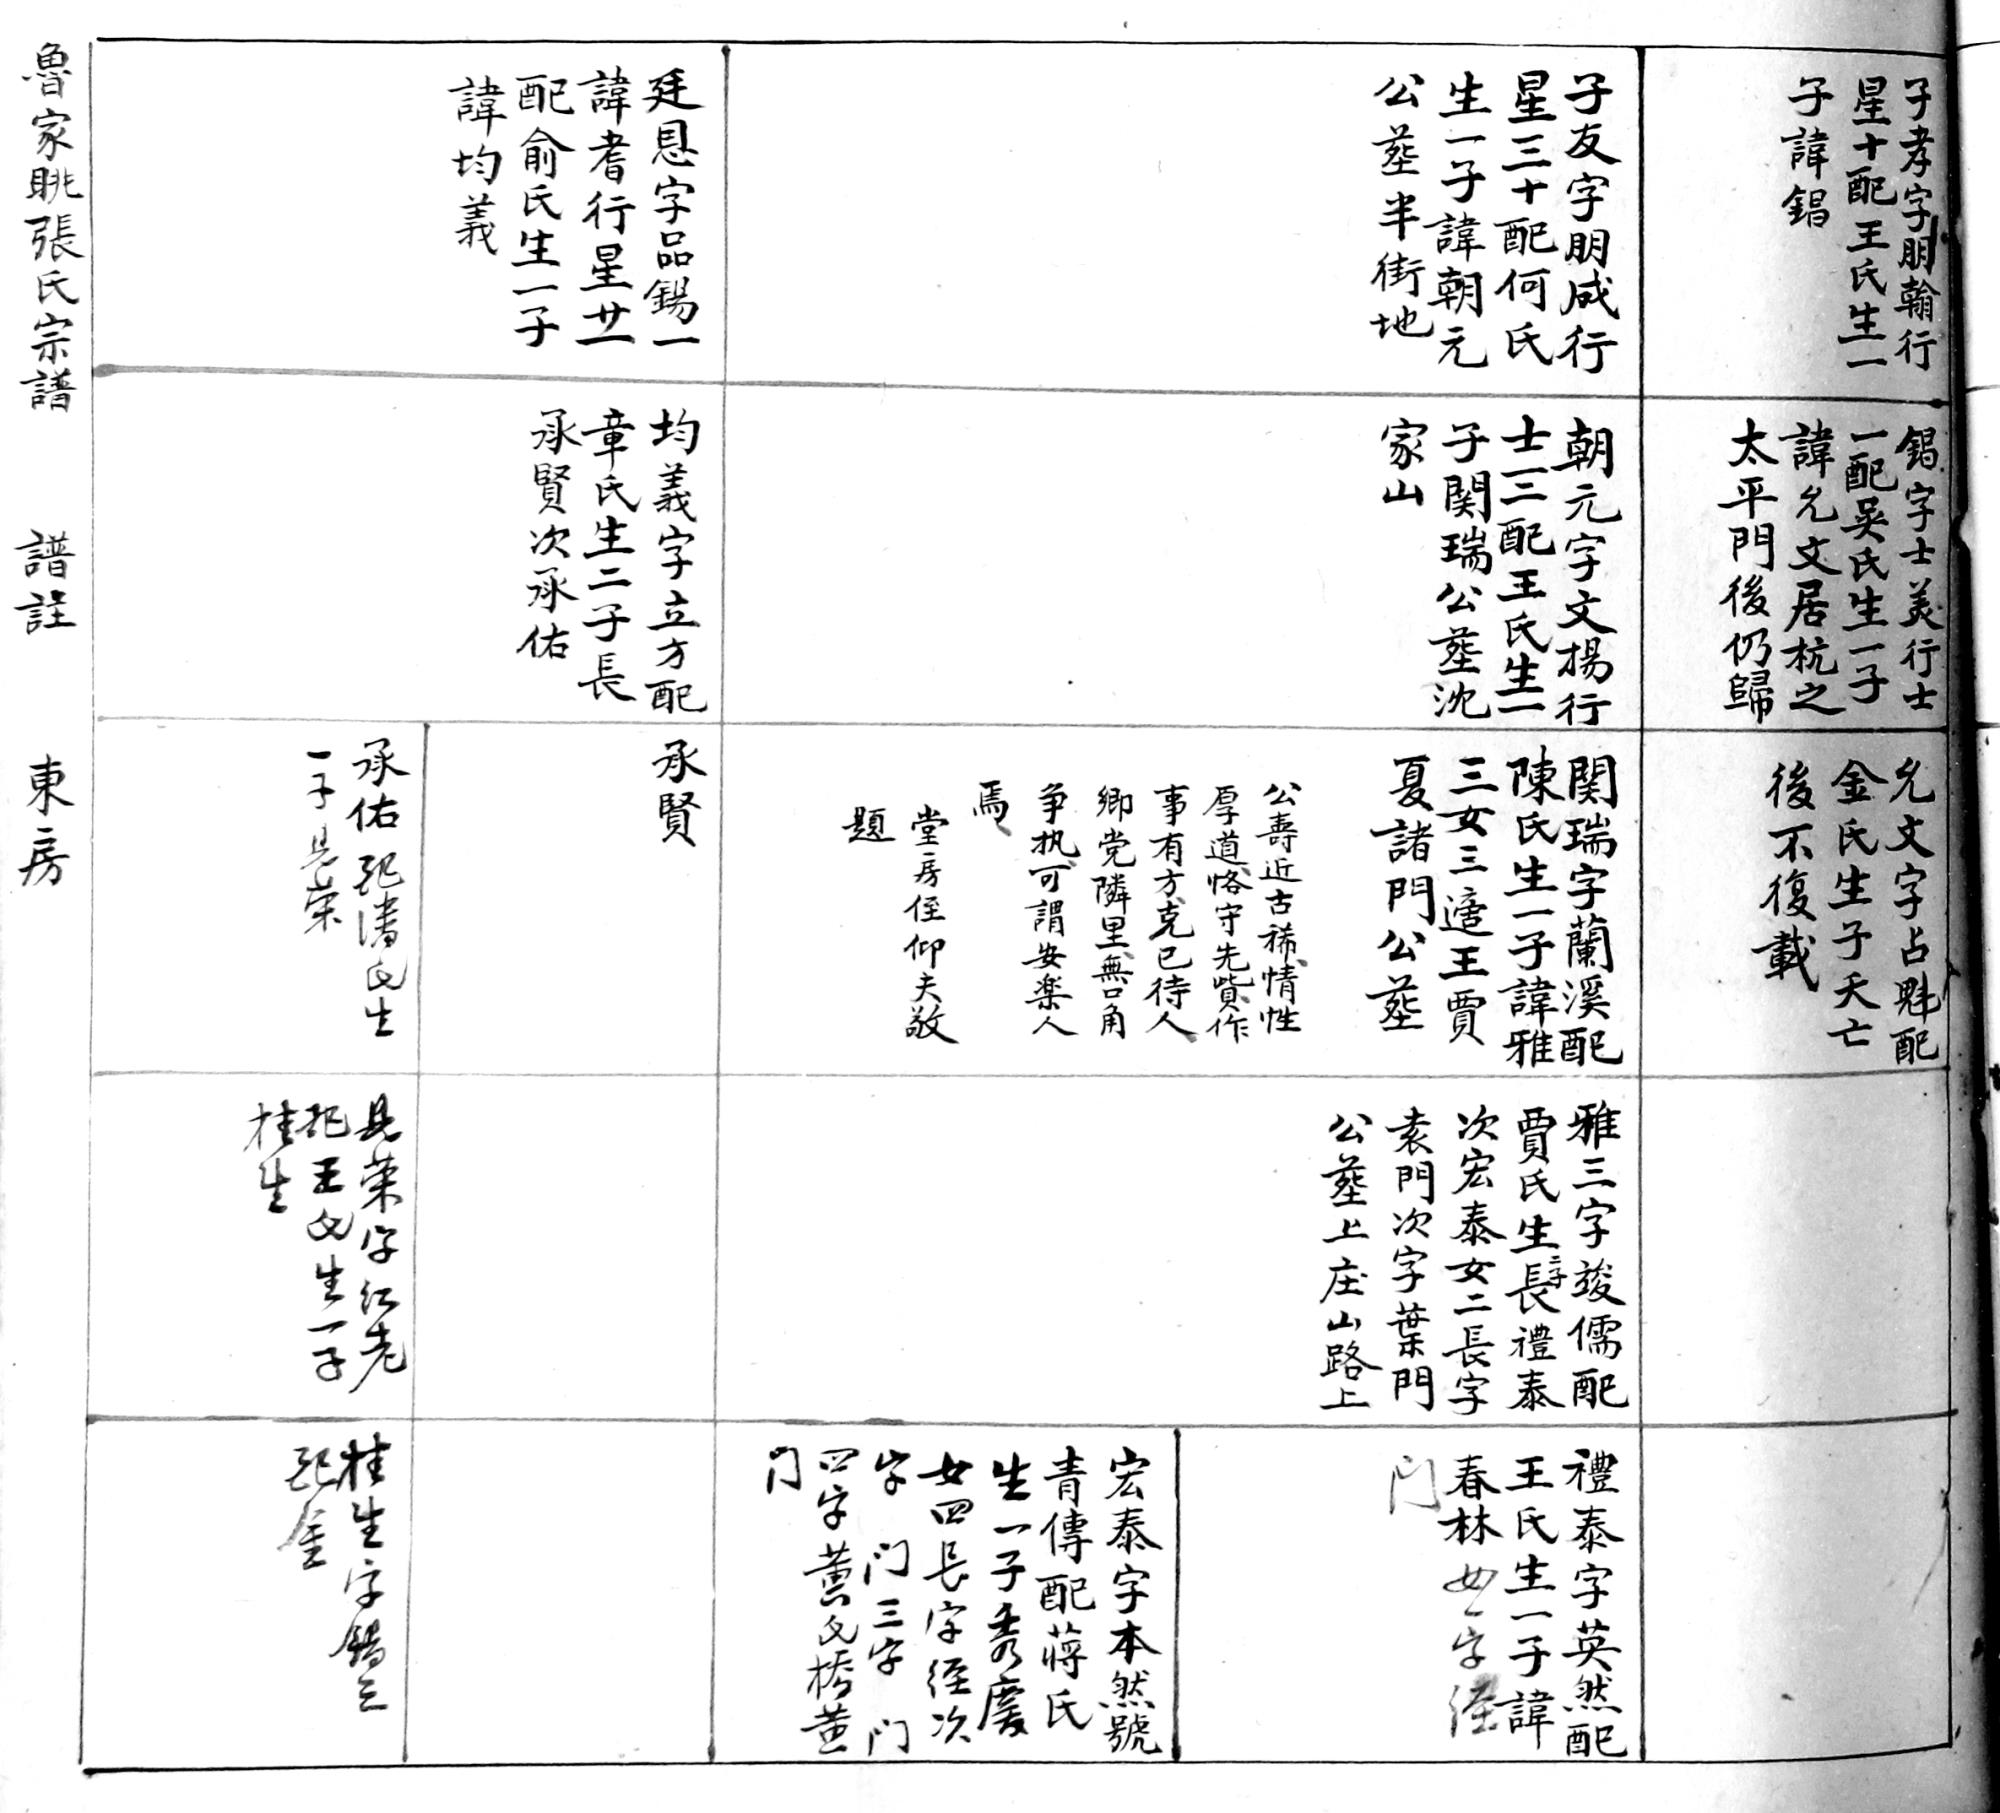 子孝字朋翰行
星十配王氏生一
子諱錩
子友字朋成行
星三十配何氏
生一子諱朝元
公塟半街地
廷恩字品錫一
諱耆行星廿一
配俞氏生一子
諱均義
錩字士美行士
一配吳氏生一子
諱允文居杭之
太平門後仍歸
朝元字文揚行
士二配王氏生一
子関瑞公塟沈
家山
均義字立方配
章氏生二子長
承賢次承佑
允文字占魁配
金氏生子夭亡
後不復載
関瑞字蘭溪配
陳氏生一子諱雅
三女三適王賈
夏諸門公塟
公壽近古稀、情性
厚道、恪守先貲、作
事有方、克已待人、
鄉党隣里、無口角
争执、可謂安楽人
焉、
堂房侄仰夫敬
題
承賢
承佑配潘氏生
一子見荣
雅三字竣儒配
賈氏生二子長禮泰
次宏泰女二長字
袁門次字葉門
公塟上庄山路上
見荣字红老
配王氏生一子
桂生
禮泰字英然配
王氏生一子諱
春林女一字
门
宏泰字本然號
青傳配蔣氏
生一子秀慶
女四長字 次
字 门三字 门
四字 黄
门
桂生字錫三
配金
魯家眺張氏宗譜 譜註 東房